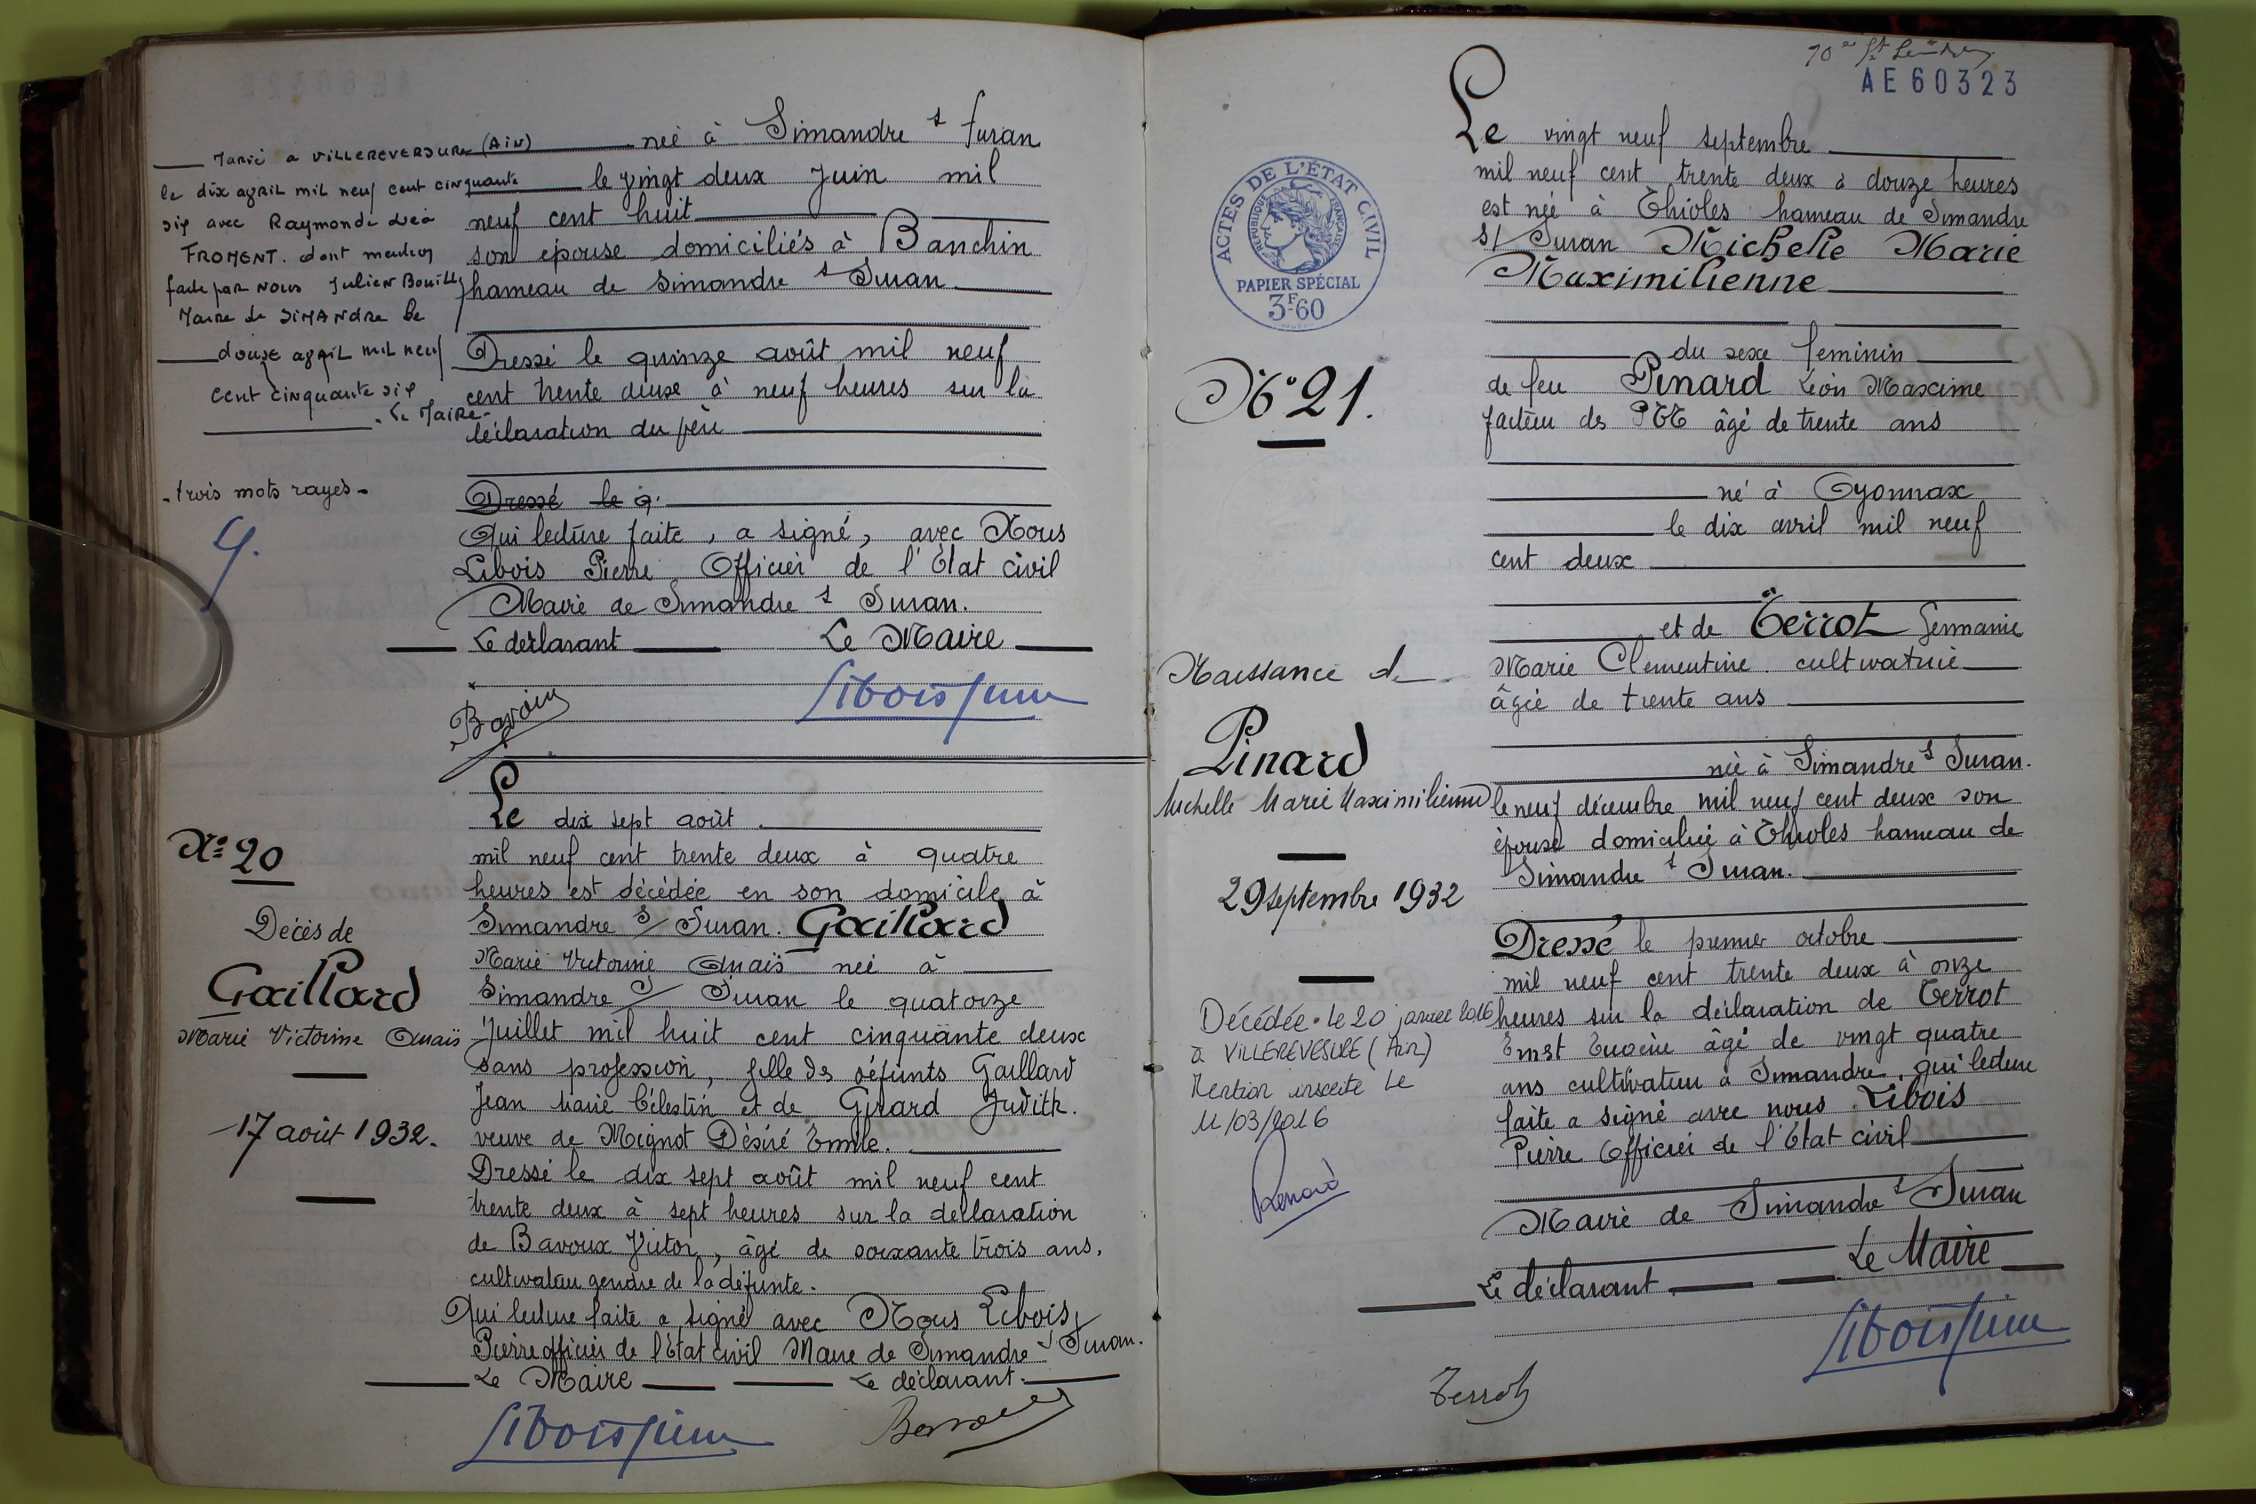 née à Simandre s Suran
le vingt deux Juin mil
neuf cent huit
son épouse domiciliés à Banchin
hameau de Simandre s Suran
Marié a VILLEREVERSURE (AIN)
le dix avril mil neuf cent cinquante
six avec Raymonde
FROMENT. dont mention
faite par nous Julien Bouilly
Maire de SIMANDRE le
douze avril mil neuf
cent cinquante six
Le Maire
Dressé le quinze août mil neuf
cent trente deux à neuf heures sur la
déclaration du père
trois mots rayés
Dressé le q.
Qui lecture faite, a signé, avec Nous
Libois Pierre Officier de l'Etat civil
Maire de Simandre s Suran.
Le déclarant Le Maire
Libois Pierre
N° 20
Décès de
Gaillard
Marie Victorine Anaïs
17 août 1932.
Le dix sept août
mil neuf cent trente deux à quatre
heures est décédée en son domicile à
Simandre s/ Suran. Gaillard
Marie Victorine Anaïs née à
Simandre s/ Suran le quatorze
Juillet mil huit cent cinquante deux
sans profession, fille des défunts Gaillard
Jean Marie Célestin et de Girard Judith.
veuve de Mignot Désiré Emile.
Dressé le dix sept août mil neuf cent
trente deux à sept heures sur la déclaration
de Bavoux Victor, âgé de soixante trois ans,
cultivateur gendre de la défunte.
Qui lecture faite a signé avec Nous Libois
Pierre officier de l'Etat civil Maire de Simandre s Suran.
Le Maire Le déclarant
Libois Pierre
AE 60323
ACTES DE L'ÉTAT CIVIL
RÉPUBLIQUE FRANÇAISE
PAPIER SPÉCIAL
3F.60
N° 21.
Naissance de
Pinard
Michelle Marie Maximilienne
29 septembre 1932
Décédée le 20 janvier 2016
à VILLEREVERSURE (Ain)
Mention inscrite le
11/03/2016
Renard
Le vingt neuf septembre
mil neuf cent trente deux à douze heures
est née à Thioles hameau de Simandre
s/ Suran Michelle Marie
Maximilienne
du sexe féminin
de feu Pinard Léon Maxime
facteur des PTT âgé de trente ans
né à Oyonnax
le dix avril mil neuf
cent deux
et de Terrot Germanie
Marie Clémentine cultivatrice
âgée de trente ans
née à Simandre s Suran.
le neuf décembre mil neuf cent deux son
épouse domiciliée à Thioles hameau de
Simandre s Suran.
Dressé le premier octobre
mil neuf cent trente deux à onze
heures sur la déclaration de Terrot
Ernest Eugène âgé de vingt quatre
ans cultivateur à Simandre, qui lecture
faite a signé avec nous Libois
Pierre Officier de l'Etat civil
Maire de Simandre s Suran
Le déclarant Le Maire
Terrot Libois Pierre